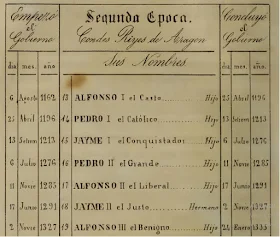 Empezó el Gobierno
Segunda Epoca.
Concluyó el Gobierno
Condes Reyes de Aragon
Sus Nombres
dia mes. año
dia mes. año
6 Agosto 1162 13 ALFONSO I el Casto Hijo 25 Abril 1196
25 Abril 1196 14 PEDRO I el Católico Hijo 13 Setem 1213
13 Setem 1213 15 JAYME I el Conquistador Hijo 1276
6 Julio 1276 16 PEDRO II el Grande Hijo 11 Novie 1285
11 Novie 1285 17 ALFONSO II el Liberal Hijo 17 Junio 1291
17 Junio 1291 18 JAYME II el Justo Hermano 2 Novie 1327
2 Novie 1327 19 ALFONSO III el Benigno Hijo 24 Enero